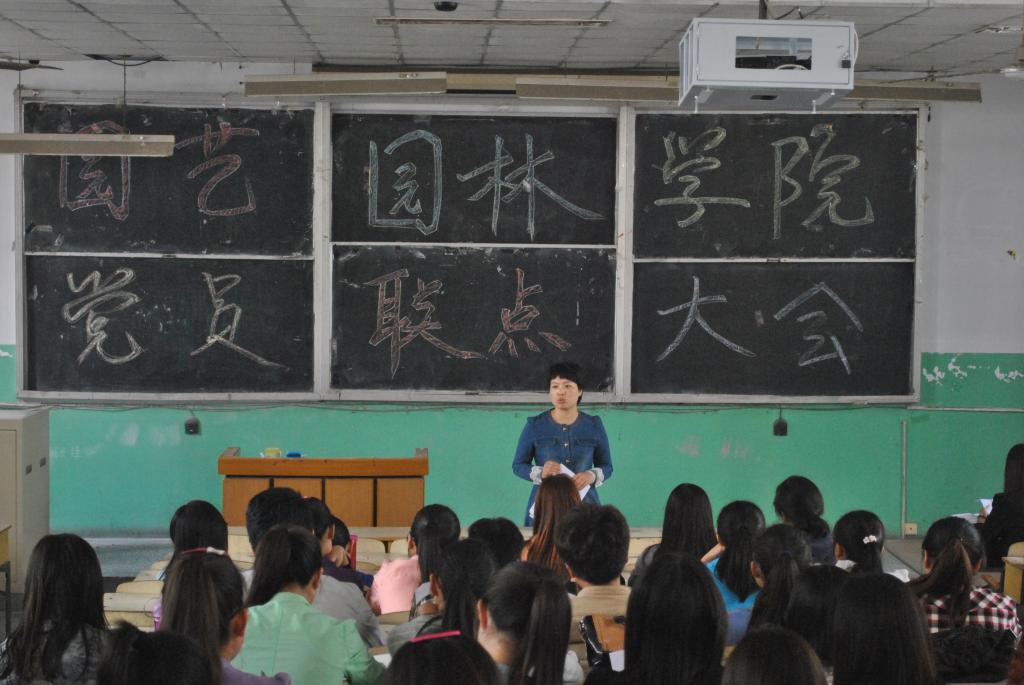 园艺园林学院
党员联点大会